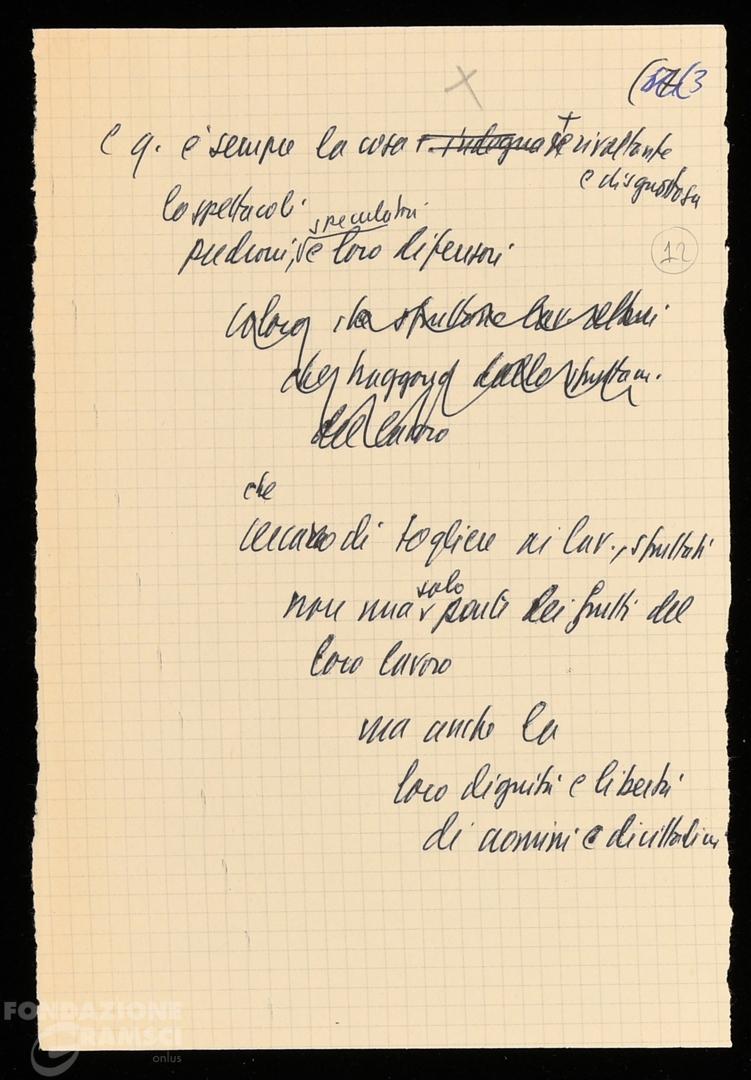 3
e q. è sempre la cosa + indegna è + rivoltante
e disgustosa
lo spettacolo:
speculatori
padroni, e loro difensori
12
coloro che
che traggono dallo sfruttam.
del lavoro
che
cercano di togliere ai lav., sfruttati
non una solo parte dei frutti del
loro lavoro
ma anche la
loro dignità e libertà
di uomini e di cittadini
FONDAZIONE
GRAMSCI
onlus